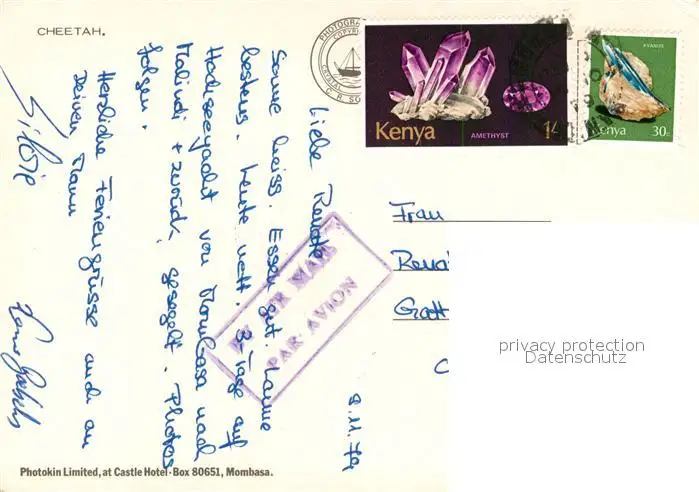 CHEETAH.
8.11.79
Liebe Renate
Sonne heiss. Essen gut. Laune
bestens. Leute nett. 3-Tage auf
Hochseeyacht von Mombasa nach
Malindi + zurück gesegelt. Photos
folgen.
Herzliche Feriengrüsse auch an
Deinen Mann
Silvie
PHOTOGRA
COPYRIG
CRYSTAL
C. R. SO
Kenya
AMETHYST
1/-
KYANITE
Kenya
30c
BY AIR MAIL
PAR AVION
Frau
Rena
Gatt
privacy protection
Datenschutz
Photokin Limited, at Castle Hotel·Box 80651, Mombasa.